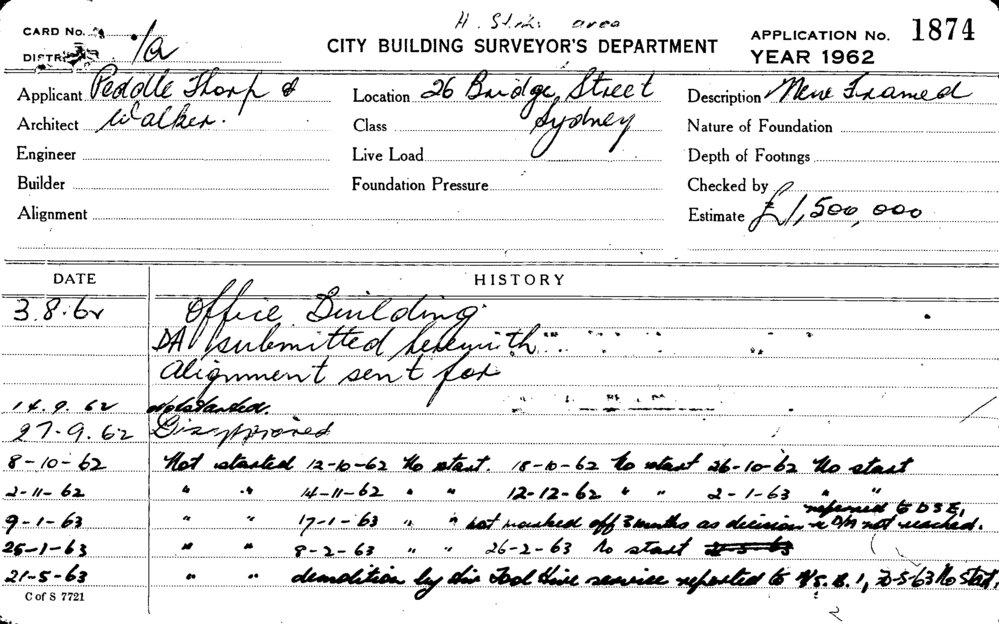 area
CARD No.
1a
CITY BUILDING SURVEYOR'S DEPARTMENT
APPLICATION No. 1874
YEAR 1962
Applicant Peddle Thorp &
Location 26 Bridge Street
Description New Framed
Architect Walker.
Class Sydney
Nature of Foundation
Engineer
Live Load
Depth of Footings
Builder
Foundation Pressure
Checked by
Alignment
Estimate £1,500,000
DATE HISTORY
3.8.62 Office Building
DA submitted herewith
Alignment sent for
14.9.62 Not started.
27-9.62 Disapproved
8-10-62 Not started 12-10-62 No start. 18-10-62 No start 26-10-62 No start
2-11-62 " " 14-11-62 " " 12-12-62 " " 2-1-63 " "
referred to DSE,
9-1-63 " " 17-1-63 " " not marked off 3 months as decision DA not reached.
25-1-63 " " 8-2-63 " " 26-2-63 No start
21-5-63 " " demolition by Tool Hire service reported to 20-5-63 No start.
C of S 7721
2